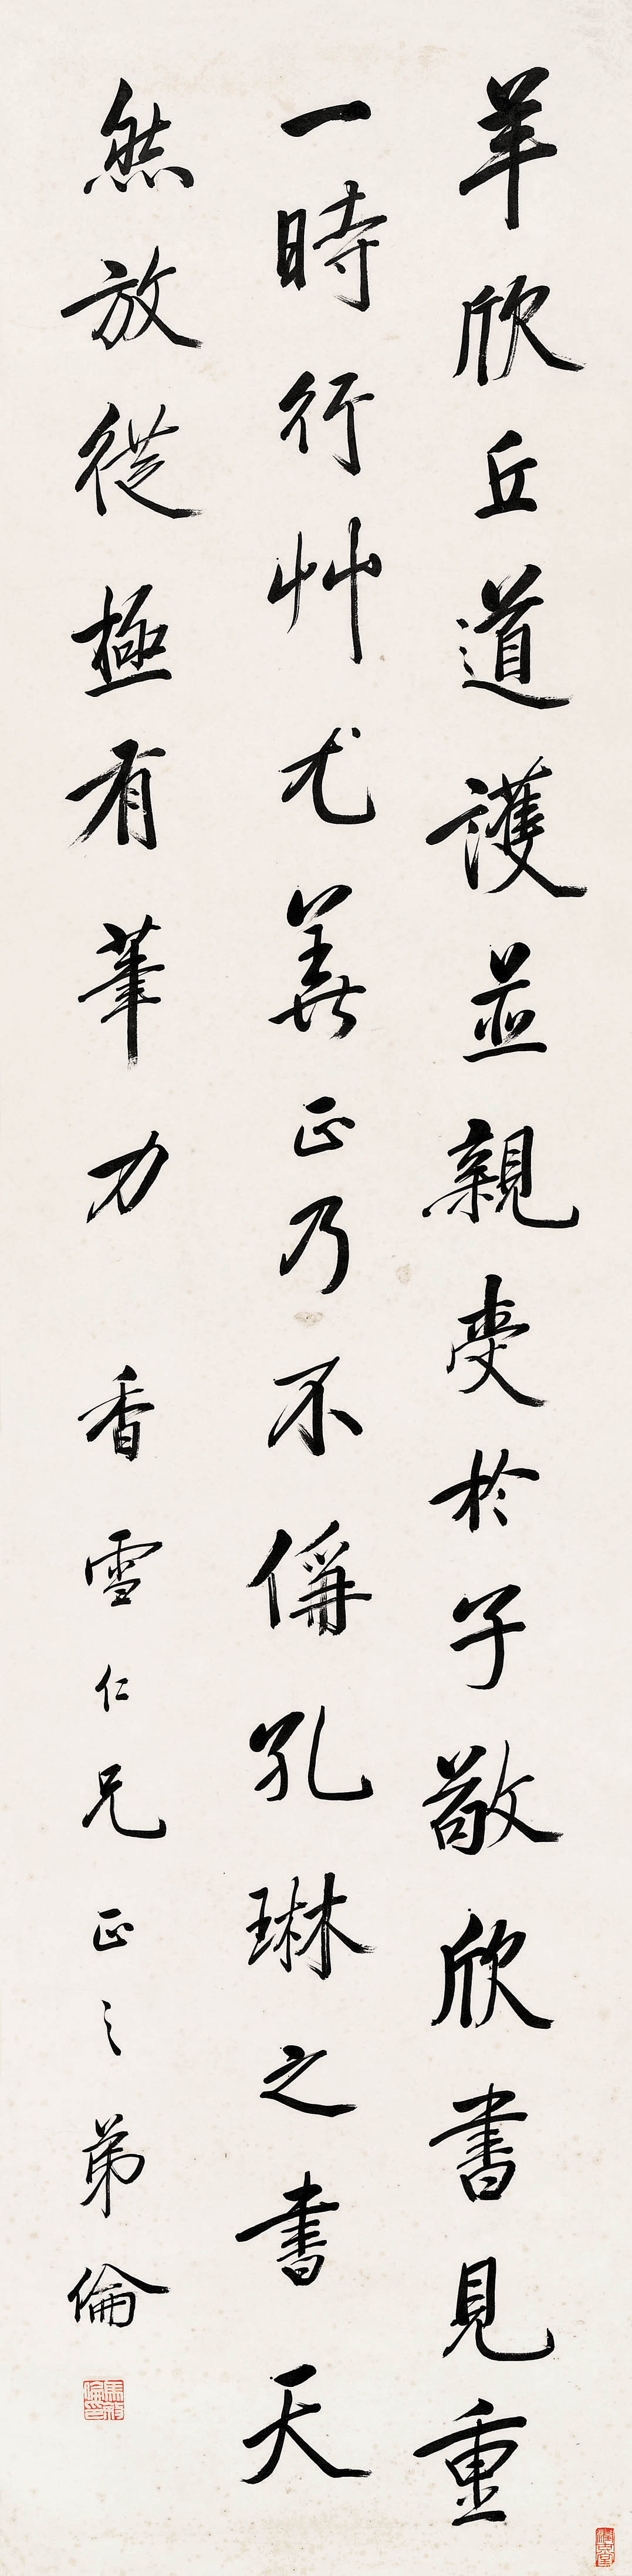 羊欣丘道護並親受於子敬欣書見重
一時行艸尤善正乃不偁孔琳之書天
然放從極有筆力 香雪仁兄正之弟倫
馬敘倫印